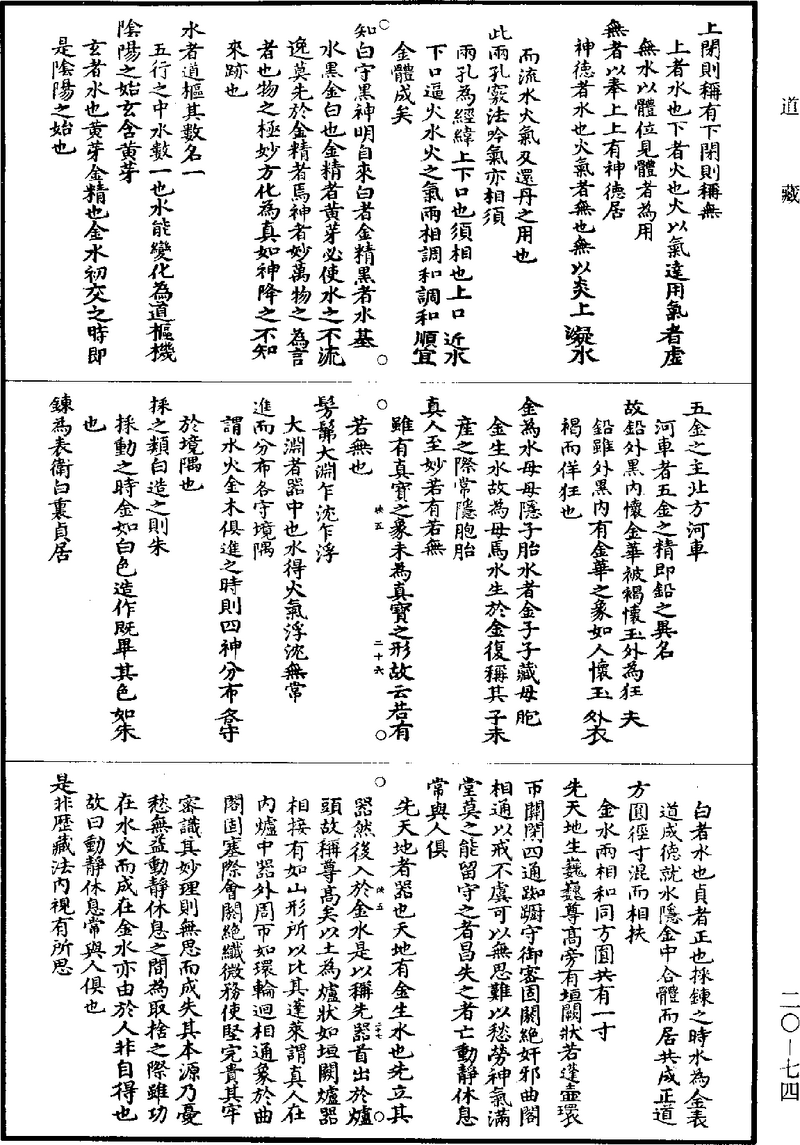 道藏
上閉則稱有下閉則稱無
上者水也下者火也火以氣達用氣者虛
無水以體位見體者為用
無者以奉上上有神德居
神德者水也火氣者無也無以炎上凝水
而流水火氣又還丹之用也
此兩孔竅法吟氣亦相須
兩孔為經緯上下口也須相也上口近水
下口逼火水火之氣兩相調和調和順宜
金體成矣
知白守黑神明自來白者金精黑者水基
水黑金白也金精者黃芽必使水之不流
逸莫先於金精者焉神者妙萬物之為言
者也物之極妙方化為真如神降之不知
來跡也
水者道樞其數名一
五行之中水數一也水能變化為道樞機
陰陽之始玄含黃芽
玄者水也黃芽金精也金水初交之時即
是陰陽之始也
五金之主北方河車
河車者五金之精即鉛之異名
故鉛外黑內懷金華被褐懷玉外為狂夫
鉛雖外黑內有金華之象如人懷玉外衣
褐而佯狂也
金為水母母隱子胎水者金子子藏母胞
金生水故為母焉水生於金復稱其子未
產之際常隱胞胎
真人至妙若有若無
雖有真寶之象未為真寶之形故云若有
映五 二十六
若無也
髣髴大淵乍沈乍浮
大淵者器中也水得火氣浮沈無常
進而分布各守境隅
謂水火金木俱進之時則四神分布各守
於境隅也
採之類白造之則朱
採動之時金如白色造作既畢其色如朱
也
鍊為表衛白裏貞居
白者水也貞者正也採鍊之時水為金表
道成德就水隱金中合體而居共成正道
方圓徑寸混而相扶
金水兩相和同方圓共有一寸
先天地生巍巍尊高旁有垣闕狀若蓬壺環
帀關閉四通踟躕守御密固闕絕奸邪曲閣
相通以戒不虞可以無思難以愁勞神氣滿
堂莫之能留守之者昌失之者亡動靜休息
常與人俱
先天地者器也天地有金生水也先立其
映五 二十七
器然後入於金水是以稱先器首出於爐
頭故稱尊高矣以土為爐狀如垣闕爐器
相接有如山形所以比其蓬萊謂真人在
內爐中器外周帀如環輪迴相通象於曲
閣固塞際會闕絕纖微務使堅完貴其牢
審識其妙理則無思而成失其本源乃憂
愁無益動靜休息之間為取捨之際雖功
在水火而成在金水亦由於人非自得也
故曰動靜休息常與人俱也
是非歷藏法內視有所思
二〇—七四